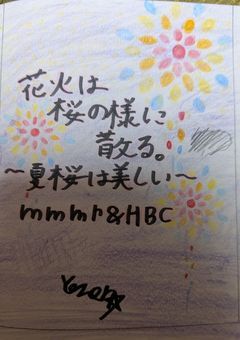 花火は
桜の様に
散る。
～夏桜は美しい～
mmmr&HBC